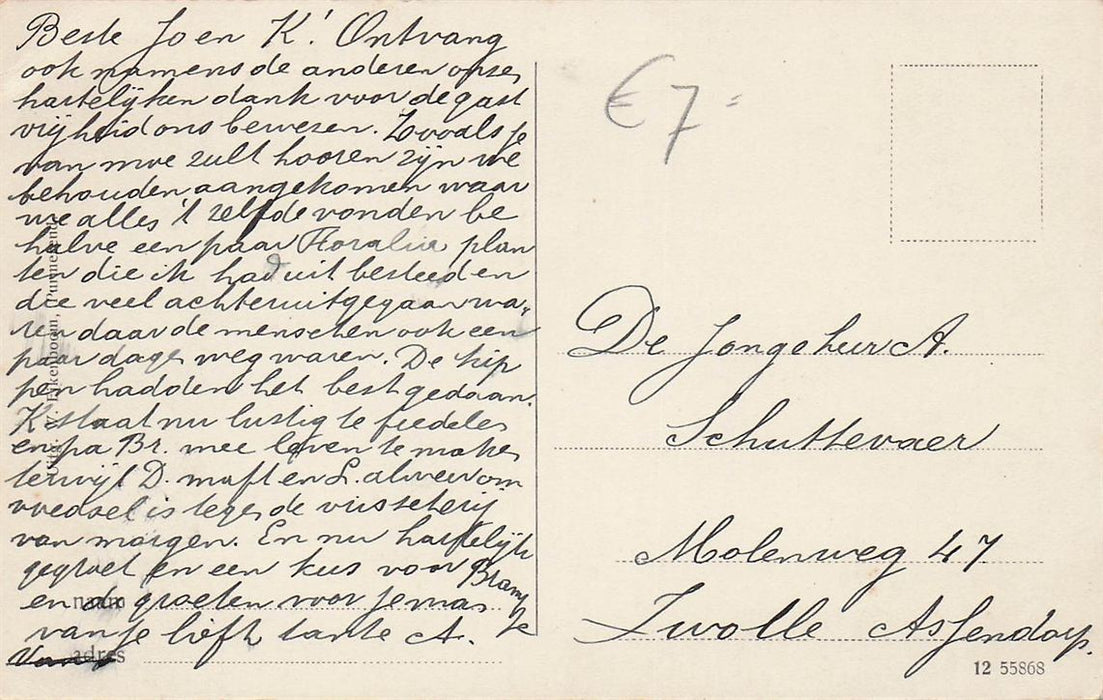 Beste Jo en K! Ontvang
ook namens de anderen onze
hartelijken dank voor de gast
vrijheid ons bewezen. Zooals je
van moe zult hooren zijn we
behouden aangekomen waar
we alles 't zelfde vonden be
halve een paar Floralia plan
ten die ik had uit besteed en
die veel achteruitgegaan wa-
ren daar de menschen ook een
paar dagen weg waren. De kip
pen hadden het best gedaan.
K staat nu lustig te fiedelen
en pa Br. mee leven te maken
terwijl D. maft en L. alweer om
voedsel is tegen de visscherij
van morgen. En nu hartelijk
gegroet en een kus voor Brampje
en de groeten voor je mas
van je liefh tante A.
naam
adres
Uitg. W. Eikenboom, Purmerend
€ 7 =
De Jongeheer A.
Schuttevaer
Molenweg 47
Zwolle Assendorp.
12 55868